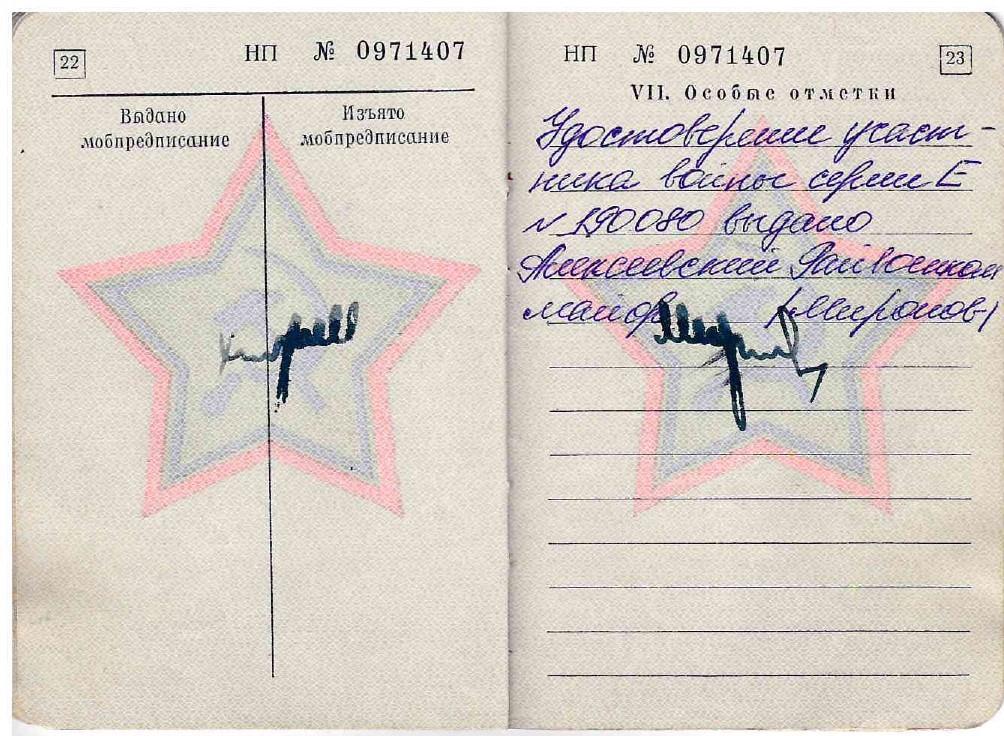 22
НП № 0971407
Выдано
мобпредписание
Изъято
мобпредписание
НП № 0971407
23
VII. Особые отметки
Удостоверение участ-
ника войны серии Е
№ 190080 выдано
Алексеевский Райвоенком
майор /Миронов/